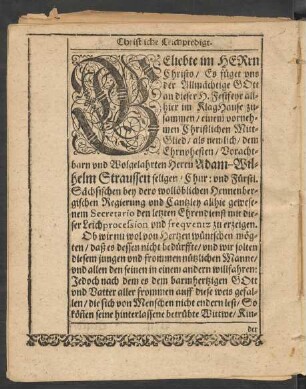 Christliche Leichpredigt.
BEliebte im HERrn
Christo/ Es füget vns
der Allmächtige GOtt
an dieser H. Festfeyr all-
hier im KlagHause zu-
sammen/ einem vorneh-
men Christlichen Mit-
Glied/ als nemlich/ dem
Ehrnvhesten/ Vorach-
barn vnd Wolgelahrten Herrn Adam-Wil-
helm Straussen seligen/ Chur: vnd Fürstl.
Sächsischen bey dero wollöblichen Hennenber-
gischen Regierung vnd Cantzley allhie gewese-
nem Secretario den letzten Ehrendienst mit die-
ser Leichprocession vnd frequentz zu erzeigen.
Ob wir nu wol von Hertzen wünschen mög-
ten/ daß es dessen nicht bedürffte/ vnd wir solten
diesem jungen vnd frommen nützlichen Manne/
vnd allen den seinen in einem andern willfahren:
Jedoch nach dem es dem barmhertzigen GOtt
vnd Vatter aller frommen auff diese weis gefal-
len/ die sich von Menschen nicht endern lest/ So
können seine hinterlassene betrübte Wittwe/ Kin-
der